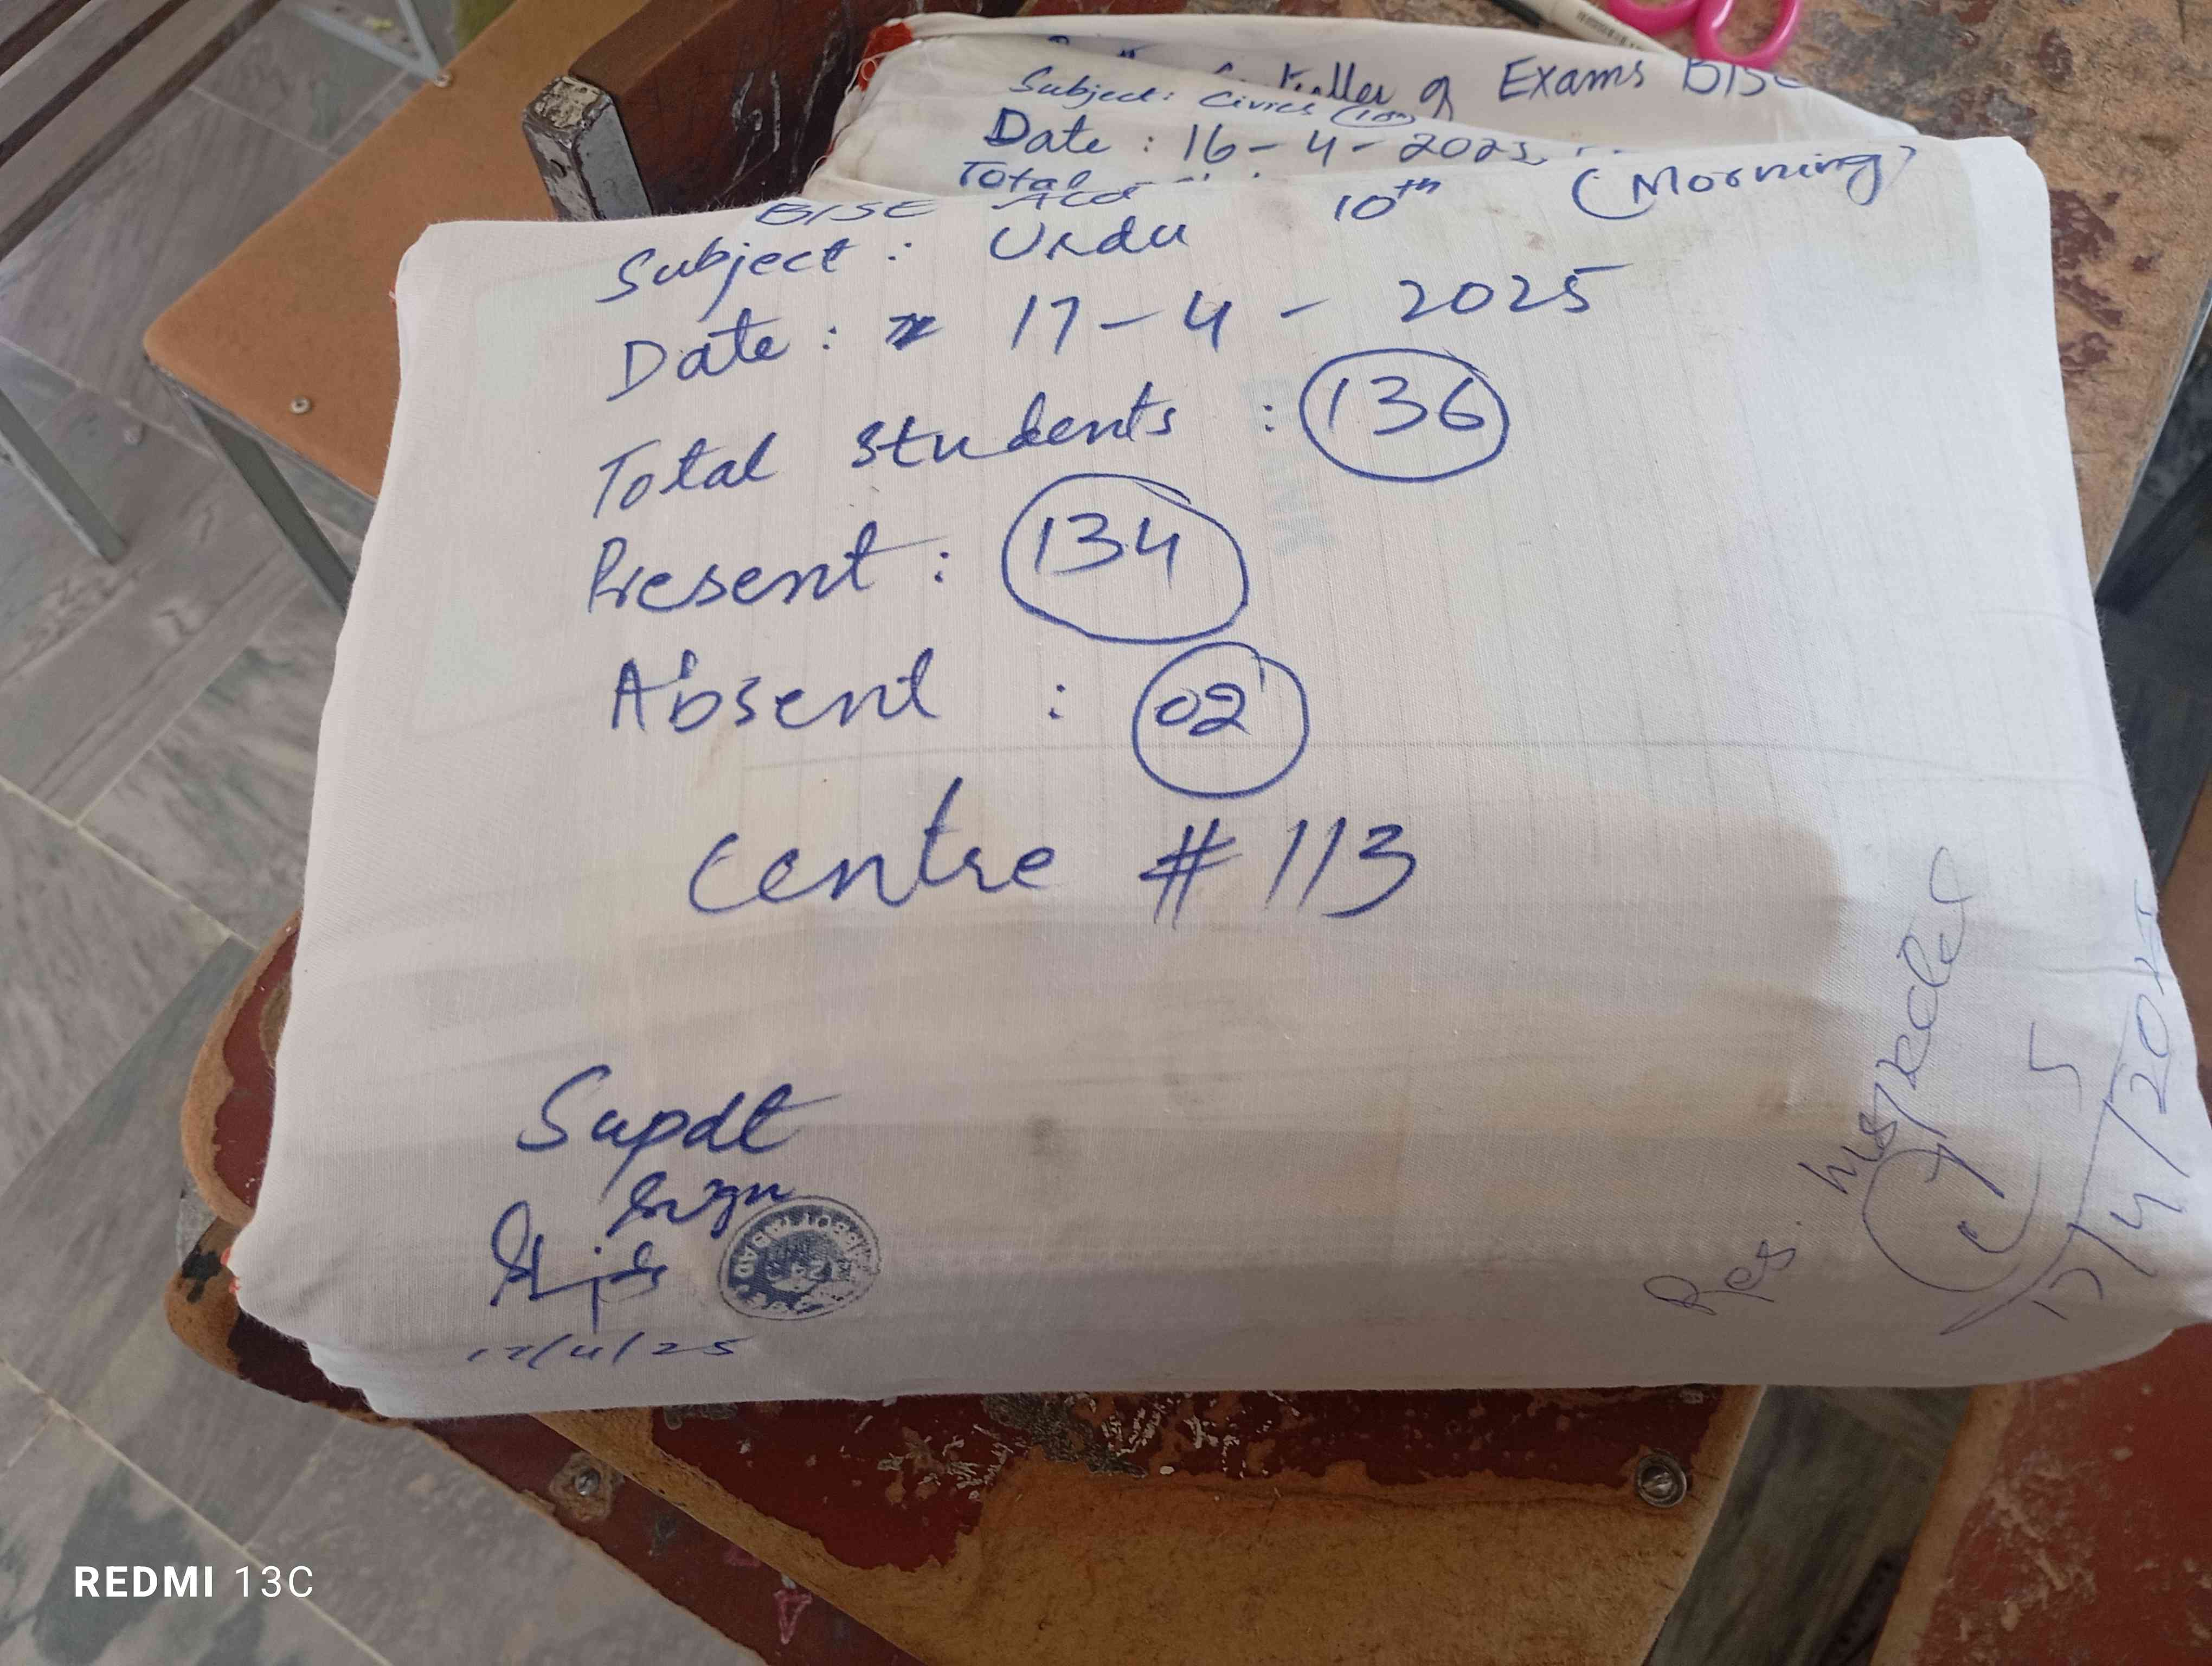 Controller of Exams BISE
Subject: Civics (10th)
Date : 16-4-2025
Total
BISE Atd
Subject : Urdu 10th (Morning)
Date : 17-4-2025
Total Students : 136
Present : 134
Absent : 02
Centre # 113
Supdt
Sign
17/4/25
ABBOTTABAD
Res. Inspector
17/4/2025
REDMI 13C